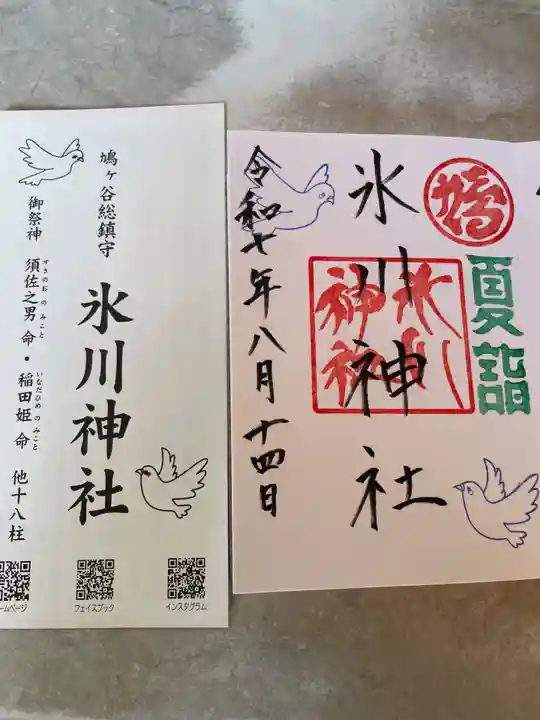 鳩ヶ谷総鎮守
氷川神社
御祭神 須佐之男命・稲田姫命 他十八柱
すさのおのみこと
いなだひめのみこと
ームページ
フェイスブック
インスタグラム
夏詣
氷川神社
氷川神社
令和七年八月十四日